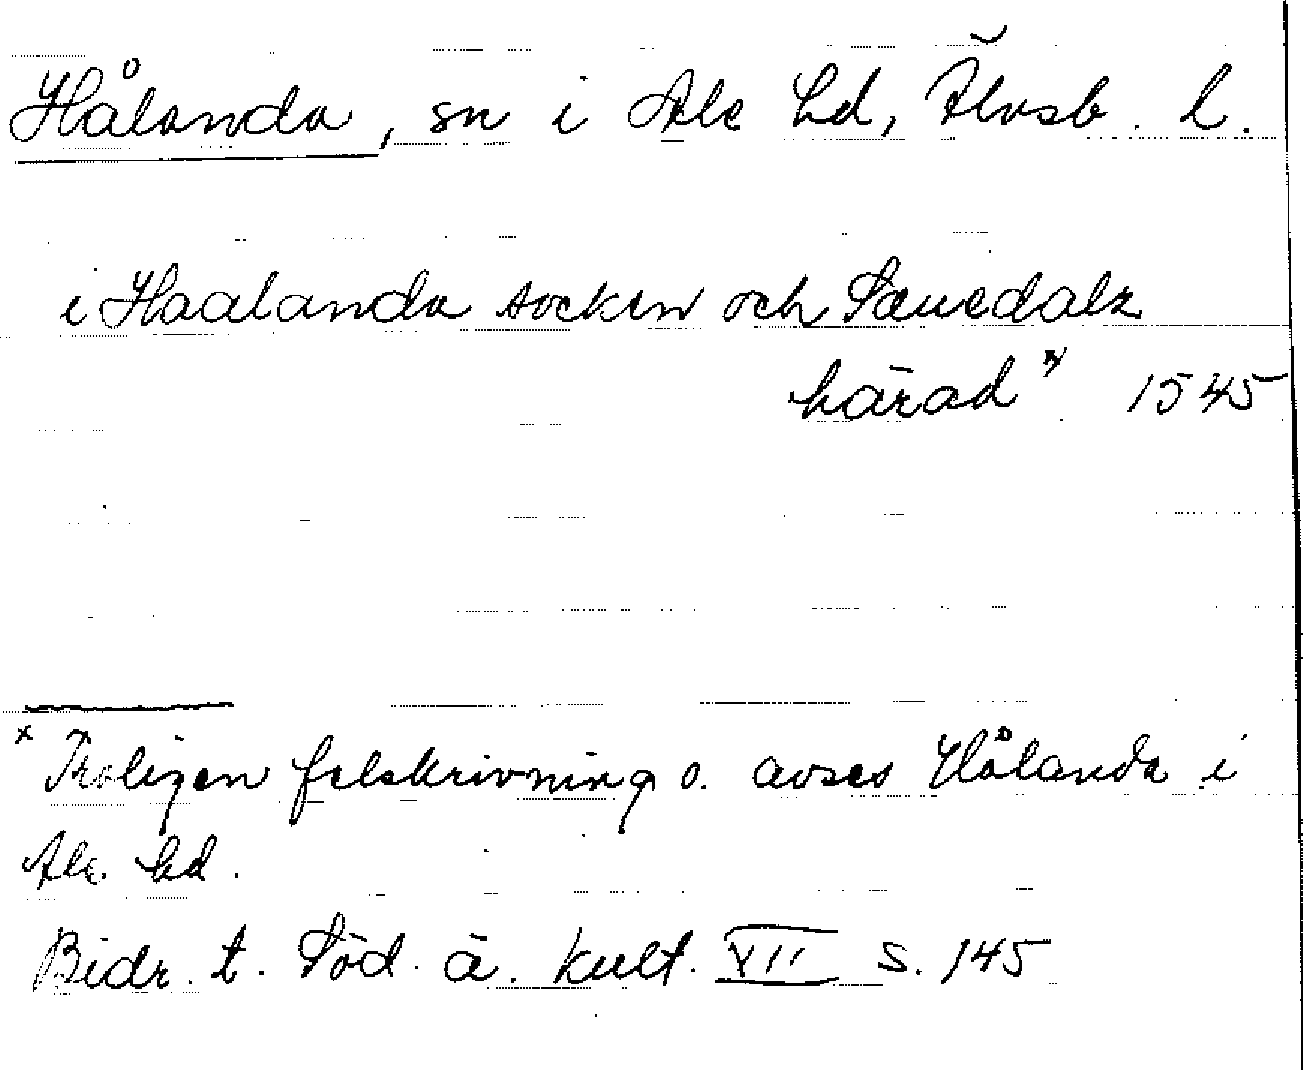 Hålanda, sn i Ale hd, Älvsb. l.
i Haalanda socken och Sæuedalz
härad x) 1545
x Troligen felskrivning o. avses Hålanda i
Ale hd.
Bidr. t. Söd. ä. kult. VII s. 145